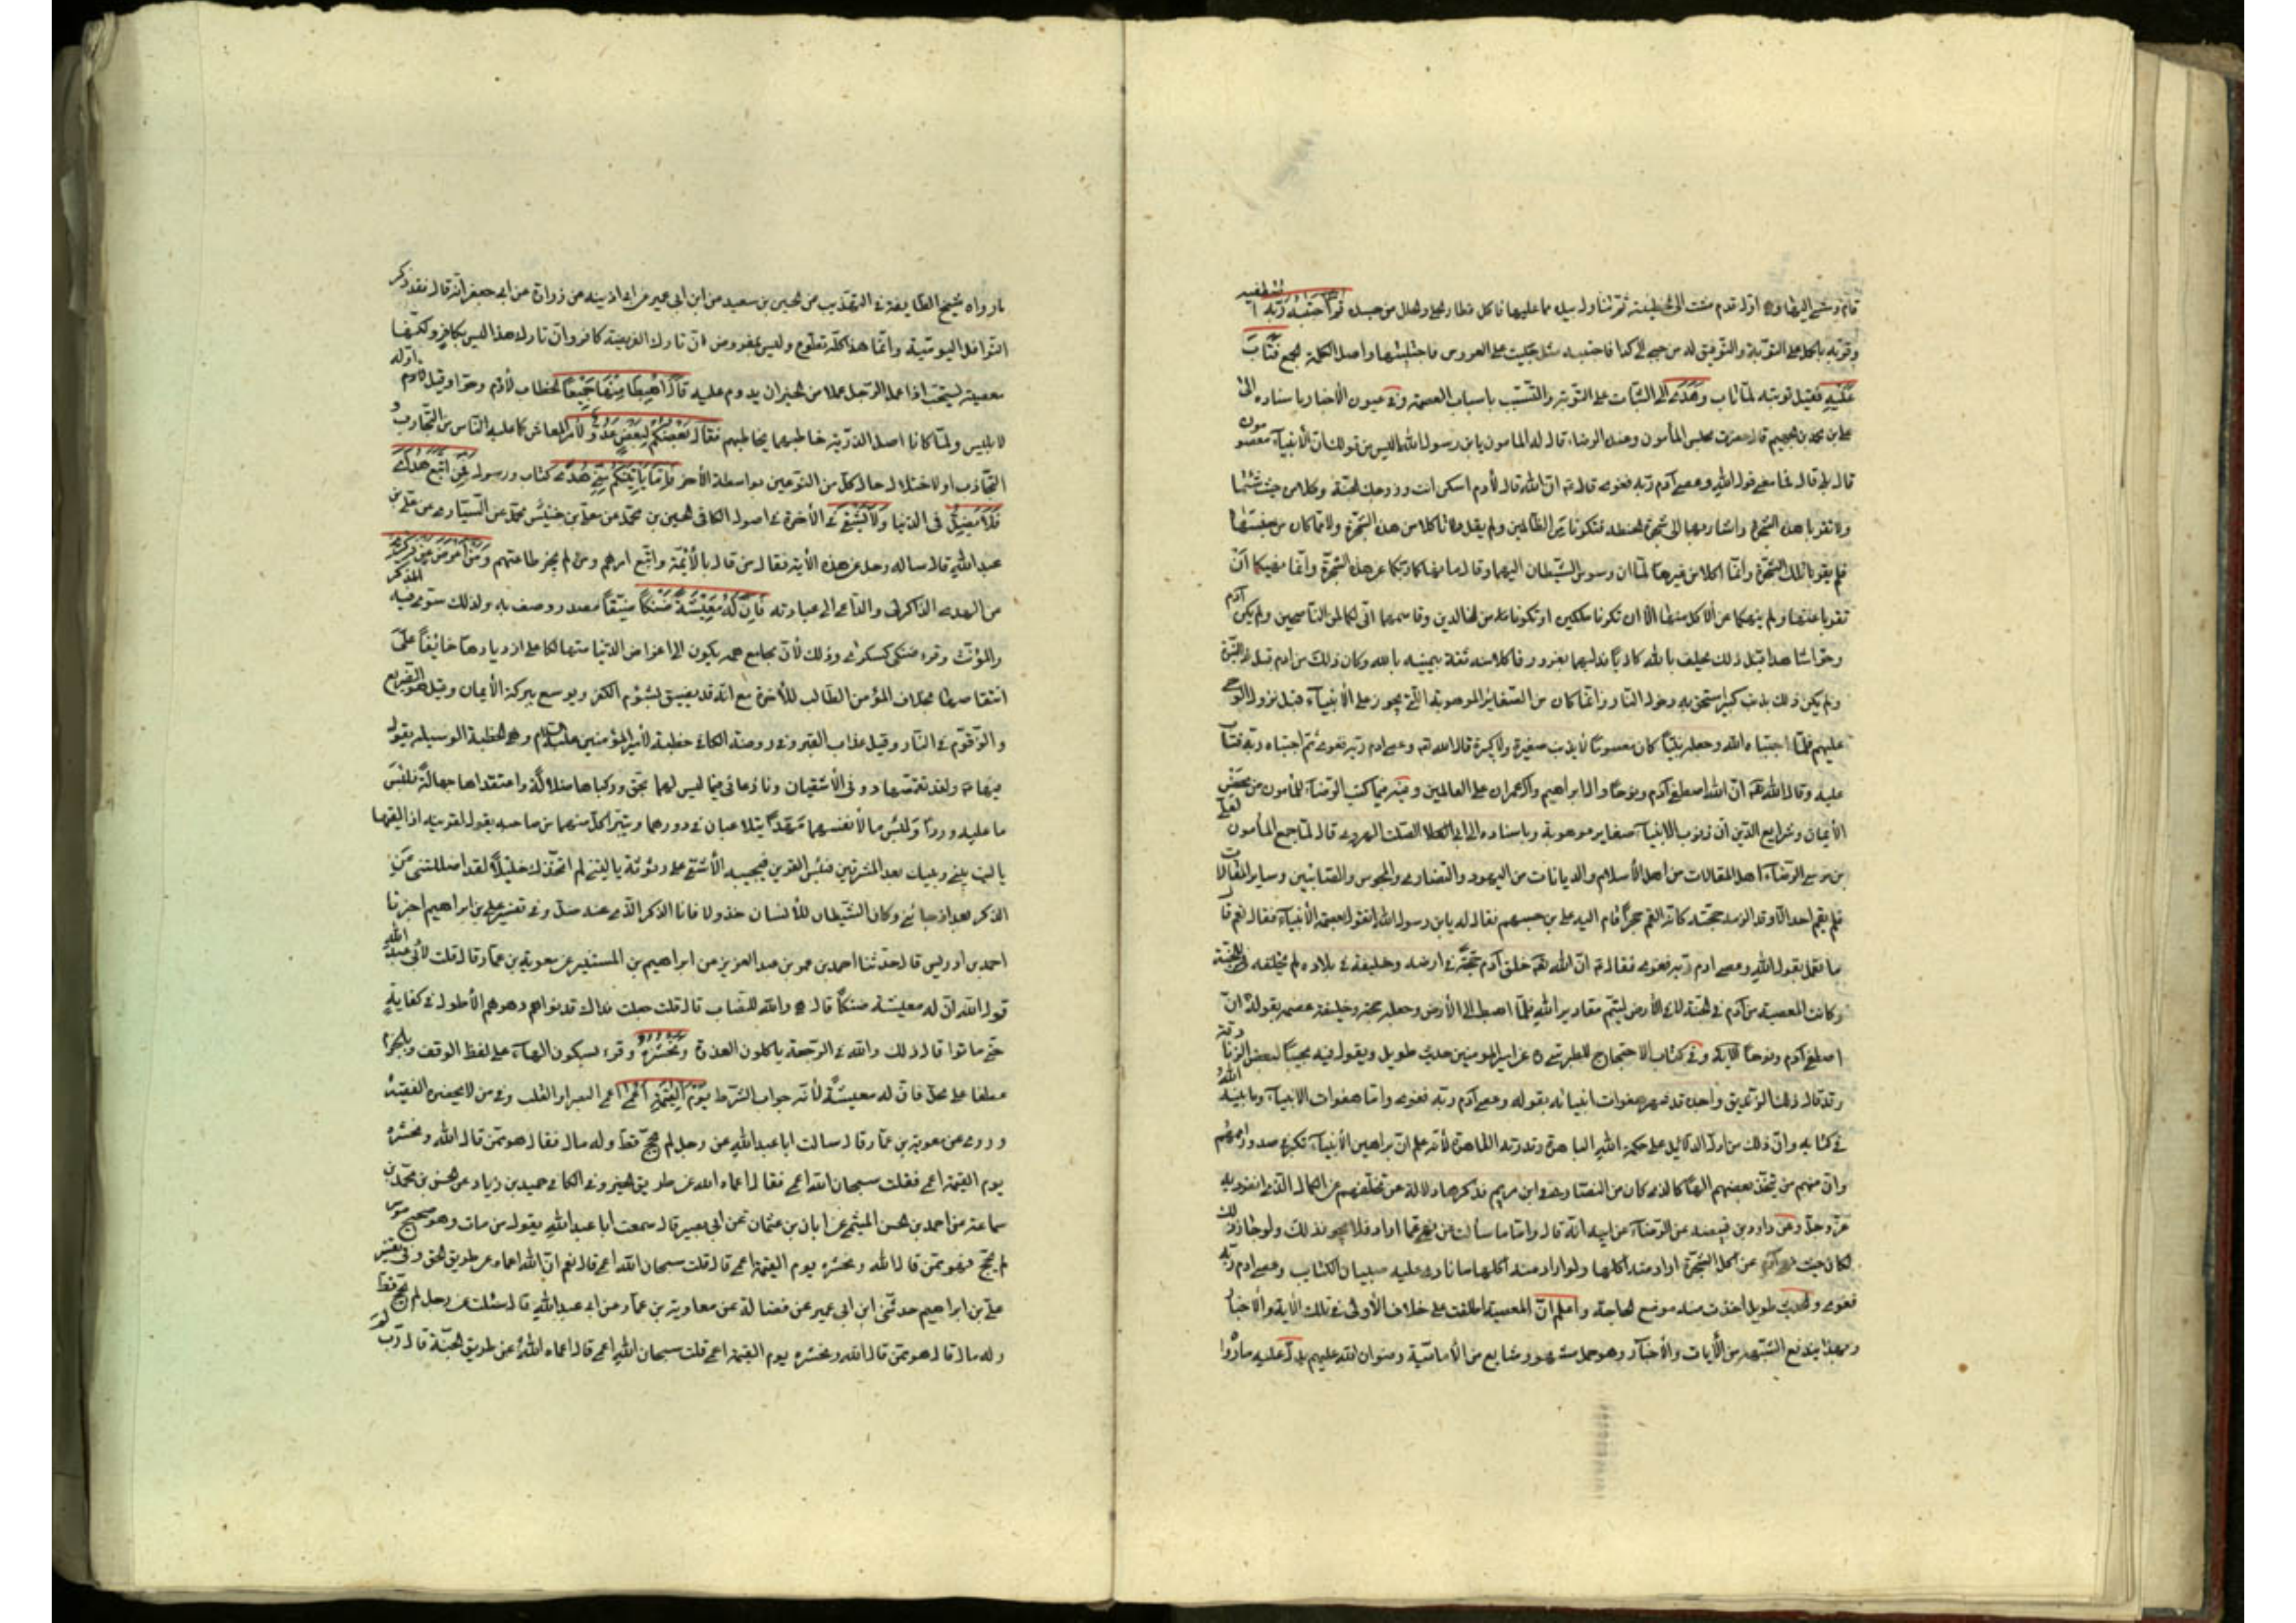 قام ومشى اليها وهي اول قدم مشت الى الخطيئة ثم تناول بيده مما عليها فاكل فطار الحلي والحلل من جسده ثم اجتبيه ربه اصطفيه
وقربه بالحمل على التوبة والتوفيق له من جبى الى كذا فاجتبيه مثل جليت على العروس فاجتليتها واصل الكلمة الجمع فتاب
عليه فقبل توبته لما تاب وهدى الى الثبات على التوبة والتشبث باسباب العصمة وفي عيون الأخبار باسناده الى
علي بن محمد بن الجهم قال حضرت مجلس المأمون وعنده الرضا قال له المأمون يا بن رسول الله اليس من قولك ان الأنبياء معصومون
قال بلى قال فما معنى قول الله وعصى آدم ربه فغوى قال ان الله قال لآدم اسكن انت وزوجك الجنة وكلا من حيث شئتما
ولا تقربا هذه الشجرة واشار لهما الى شجرة الحنطة فتكونا من الظالمين ولم يقل ولا تاكلا من هذه الشجرة ولا مما كان من جنسها
فلم يقربا تلك الشجرة وانما اكلا من غيرها لما ان وسوس الشيطان اليهما وقال ما نهاكما ربكما عن هذه الشجرة وانما نهيكما ان
تقربا غيرها ولم ينهكما عن الأكل منها الا ان تكونا ملكين او تكونا من الخالدين وقاسمهما اني لكما لمن الناصحين ولم يكن آدم
وحوا شاهدا قبل ذلك من يحلف بالله كاذبا فدليهما بغرور فاكلا منه ثقة بيمينه بالله وكان ذلك من ادم قبل النبوة
ولم يكن ذلك بذنب كبير استحق به دخول النار وانما كان من الصغائر الموهوبة التي تجوز على الأنبياء قبل نزول الوحي
عليهم فلما اجتباه الله وجعله نبيا كان معصوما لا يذنب صغيرة ولا كبيرة قال الله وعصى ادم ربه فغوى ثم اجتباه ربه فتاب
عليه وقال الله ان الله اصطفى آدم ونوحا وال ابراهيم وآل عمران على العالمين وفيه فيما كتب الرضا للمأمون من محض
الأيمان وشرايع الدين ان ذنوب الانبياء صغاير موهوبة وباسناده الى ابي الصلت الهروي قال لما جمع المأمون لعلي
بن موسى الرضا اهل المقالات من اهل الأسلام والديانات من اليهود والنصارى والمجوس والصابئين وساير المقالات
فلم يقم احد الا وقد الزمه حجته كانه القم حجرا قام اليه علي بن الجهم فقال له يا بن رسول الله اتقول بعصمة الأنبياء فقال نعم قال
ما تقول بقول الله وعصى ادم ربه فغوى فقال ان الله خلق آدم حجة في ارضه وخليفة في بلاده لم يخلقه للجنة
وكانت المعصية من آدم في الجنة لا في الأرض ليتم مقادير الله فلما اهبط الى الأرض وجعله حجة وخليفة عصم بقوله ان الله
اصطفى آدم ونوحا الآية وفي كتاب الاحتجاج للطبرسي عن امير المؤمنين حديث طويل ويقول فيه مجيبا لبعض الزنادقة
وقد قال ذلك الزنديق واجده قد شهر هفوات انبيائه بقوله وعصى آدم ربه فغوى واما هفوات الانبياء وما بينه الله
في كتابه وان ذلك من ادل الدلائل على حكمة الله الباهرة وقدرته القاهرة لأنه علم ان براهين الأنبياء تكبر في صدور اممهم
وان منهم من يتخذ بعضهم الها كالذي كان من النصارى في ابن مريم فذكرها دلالة عن تخلفهم عن الكمال الذي انفرد به
عز وجل وعن داود بن قبيصة عن الرضا عن ابيه انه قال واما ما سألت هل نهى عما اراد فلا يجوز ذلك ولو جاز ذلك
لكان حيث نهى آدم عن اكل الشجرة اراد منه اكلها ولو اراد منه اكلها ما نادى عليه صبيان الكتاب وعصى ادم ربه
فغوى والحديث طويل اخذت منه موضع الحاجة واعلم ان المعصية اطلقت على خلاف الأولى في تلك الآية والأخبار
وبهذا يندفع الشبهة من الآيات والأخبار وهو حمل مشهور وشايع من الأمامية رضوان الله عليهم يدل عليه ما روا
ما رواه شيخ الطايفة في التهذيب عن الحسين بن سعيد عن ابن ابي عمير عن ابن اذينة عن زرارة عن ابي جعفر انه قال فقد ذكر
النوافل اليومية وانما هذا كله تطوع وليس بمفروض ان تارك الفريضة كافر وان تارك هذا ليس بكافر ولكنها
معصية ليستحب اذا عمل الرجل عملا من الخير ان يدوم عليه قال اهبطا منها جميعا الخطاب لأدم وحوا وقيل لادم
ولابليس ولما كانا اصل الذرية خاطبهما مخاطبهم فقال بعضكم لبعض عدو لأمر المعاش كما عليه الناس من التجارب
التجاذب او لاختلال حال كل من النوعين بواسطة الأخر فاما يأتينكم مني هدى كتاب ورسول فمن اتبع هداي
فلا يضل في الدنيا ولا يشقى في الأخرة في اصول الكافي الحسين بن محمد عن معلى بن محمد عن السياري عن علي بن
عبد الله قال ساله رجل عن هذه الأية فقال من قال بالأئمة واتبع امرهم ومن لم يجز طاعتهم ومن اعرض عن ذكري
من الهدى الذاكر لي والداعي الى عبادته فان له معيشة ضنكا ضيقا مصدر وصف به ولذلك ستوى فيه المذكر
والمؤنث وقرء ضنكى كسكرى وذلك لأن مجامع همه يكون الى اعراض الدنيا متهالكا على ازديادها خايفا على
انتقاصها بخلاف المؤمن الطالب للأخرة مع انه قد يضيق لشؤم الكفر ويوسع ببركة الأيمان وقيل هو الضريع
والزقوم في النار وقيل عذاب القبر وفي روضة الكافي خطبة لأمير المؤمنين عليه السلام وهي الخطبة الوسيلة يقول
فيها ولقد تقمصها دوني الأشقيان ونازعاني فيما ليس لهما بحق وركباها ضلالة واعتقداها جهالة فلبئس
ما عليه وردا ولبئس ما لأنفسهما مهدا يتلاعنان في دورهما ويتبرأ كل منهما من صاحبه يقول لقرينه اذا التقيا
يا ليت بيني وبينك بعد المشرقين فبئس القرين فيجيبه الأشقى على رثوثة يا ليتني لم اتخذك خليلا لقد اضللتني عن
الذكر بعد اذ جائني وكان الشيطان للأنسان خذولا فانا الذكر الذي عنه ضل وفي تفسير علي بن ابراهيم اخبرنا
احمد بن ادريس قال حدثنا احمد بن عمر بن عبد العزيز عن ابراهيم بن المستنير عن معوية بن عمار قال قلت لأبي عبد الله
قول الله ان له معيشة ضنكا قال هي والله للنصاب قال قلت جعلت فداك قد نراهم دهرهم الأطول في كفاية
حتى ماتوا قال ذلك والله في الرجعة ياكلون العذرة ونحشره وقرء بسكون الهاء على لفظ الوقف وبالجزم
عطفا على محل فان له معيشة لأنه جواب الشرط يوم القيمة اعمى اعمى البصر او القلب وفي من لا يحضره الفقيه
وروى عن معوية بن عمار قال سالت ابا عبد الله عن رجل لم يحج قط وله مال فقال هو ممن قال الله ونحشره
يوم القيمة اعمى فقلت سبحان الله اعمى فقال اعماه الله عن طريق الخير وفي الكافي حميد بن زياد عن الحسن بن محمد بن
سماعة عن احمد بن الحسن الميثمي عن ابان بن عثمان عن ابي بصير قال سمعت ابا عبد الله يقول من مات وهو صحيح موسر
لم يحج فهو ممن قال الله ونحشره يوم القيمة اعمى قال قلت سبحان الله اعمى قال نعم ان الله اعماه عن طريق الحق وفي تفسير
علي بن ابراهيم حدثني ابن ابي عمير عن فضالة عن معاوية بن عمار عن ابي عبد الله قال سئلت عن رجل لم يحج قط
وله مال قال هو ممن قال الله ونحشره يوم القيمة اعمى قلت سبحان الله اعمى قال اعماه الله عن طريق الجنة قال رب